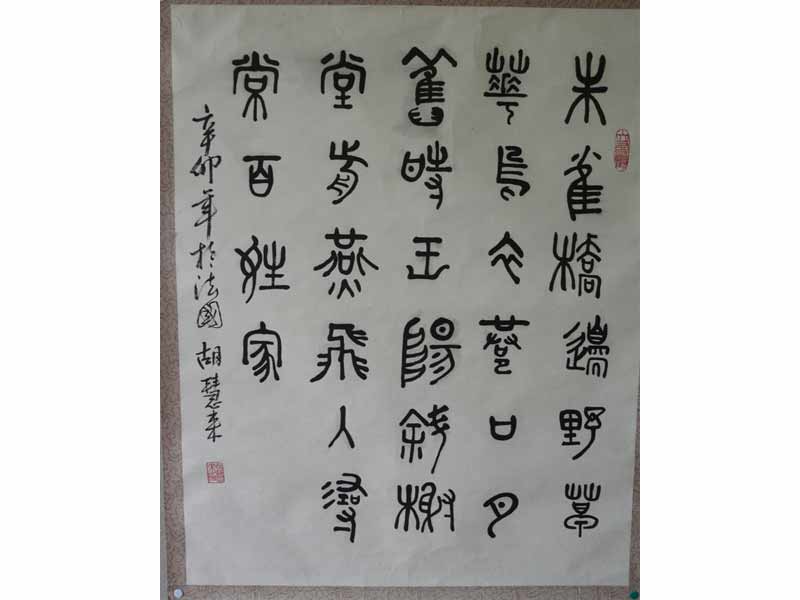 朱雀橋邊野草
華烏衣巷口夕
舊時王陽斜榭
堂前燕飛入尋
常百姓家
辛卯年於法國 胡慧